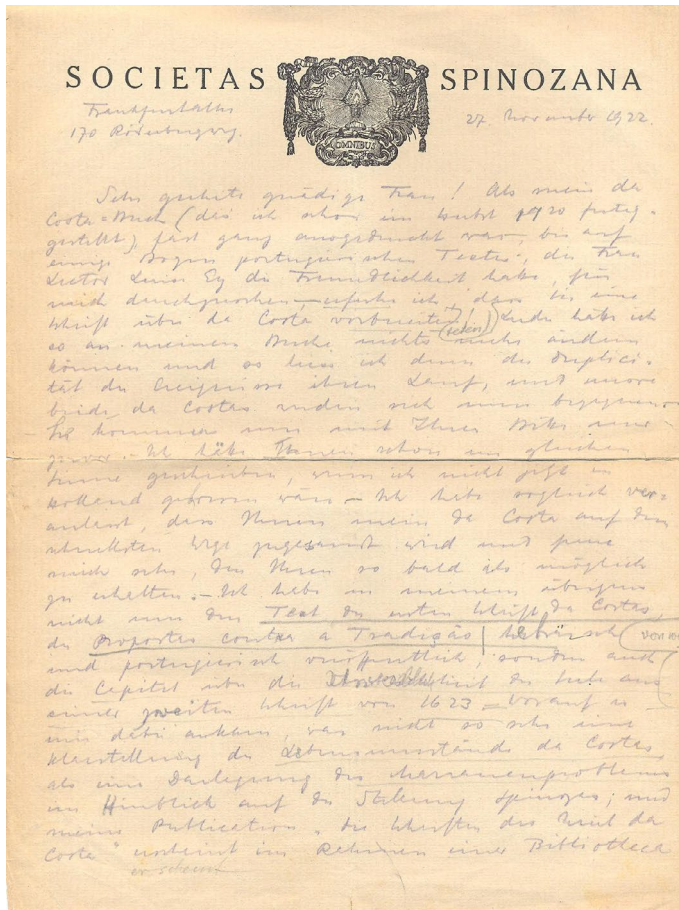 SOCIETAS SPINOZANA
OMNIBUS
Frankfurt a/M
27 November 1922.
170
Sehr geehrte gnädige Frau! Als mein da
Costa-Buch (das ich schon im 1920 fertig-
gestellt), fast ganz ausgedruckt war, bis auf
einige Bogen portugiesischen Textes, die Frau
Lector Luise Ey die Freundlichkeit hatte, für
mich durchzusehen – erfuhr ich, dass Sie eine
Schrift über da Costa vorbereiten. Leider hätte ich
(schon)
so an meinem Buche nichts mehr ändern
können und so liess ich denn der Duplici-
tät der Ereignisse ihren Lauf, und unsere
beide da Costas werden sich nun begegnen.
Sie kommen mir mit Ihrer Bitte nur
zuvor. – Ich hätte Ihnen schon im gleichen
Sinne geschrieben, wenn ich nicht jetzt in
Holland gewesen wäre – Ich habe sogleich ver-
anlasst, dass Ihnen mein da Costa auf dem
schnellsten Wege zugesandt wird und freue
mich sehr, den Ihren so bald als möglich
zu erhalten. – Ich habe in meinem übrigens
nicht nur den Text der ersten Schrift da Costas,
der Propostas contra a Tradição hebräisch
und portugiesisch veröffentlich, sondern auch
die Capitel über die Unsterblichkeit der Seele aus
einer zweiten Schrift von 1623 – Worauf es
mir dabei ankam, war nicht so sehr eine
Klarstellung der Lebensumstände da Costas
als eine Darlegung des Marranenproblems
im Hinblick auf die Stellung Spinozas; und
meine Publication „die Schriften des Uriel da
Costa" erscheint im Rahmen einer Bibliotheca
erscheint